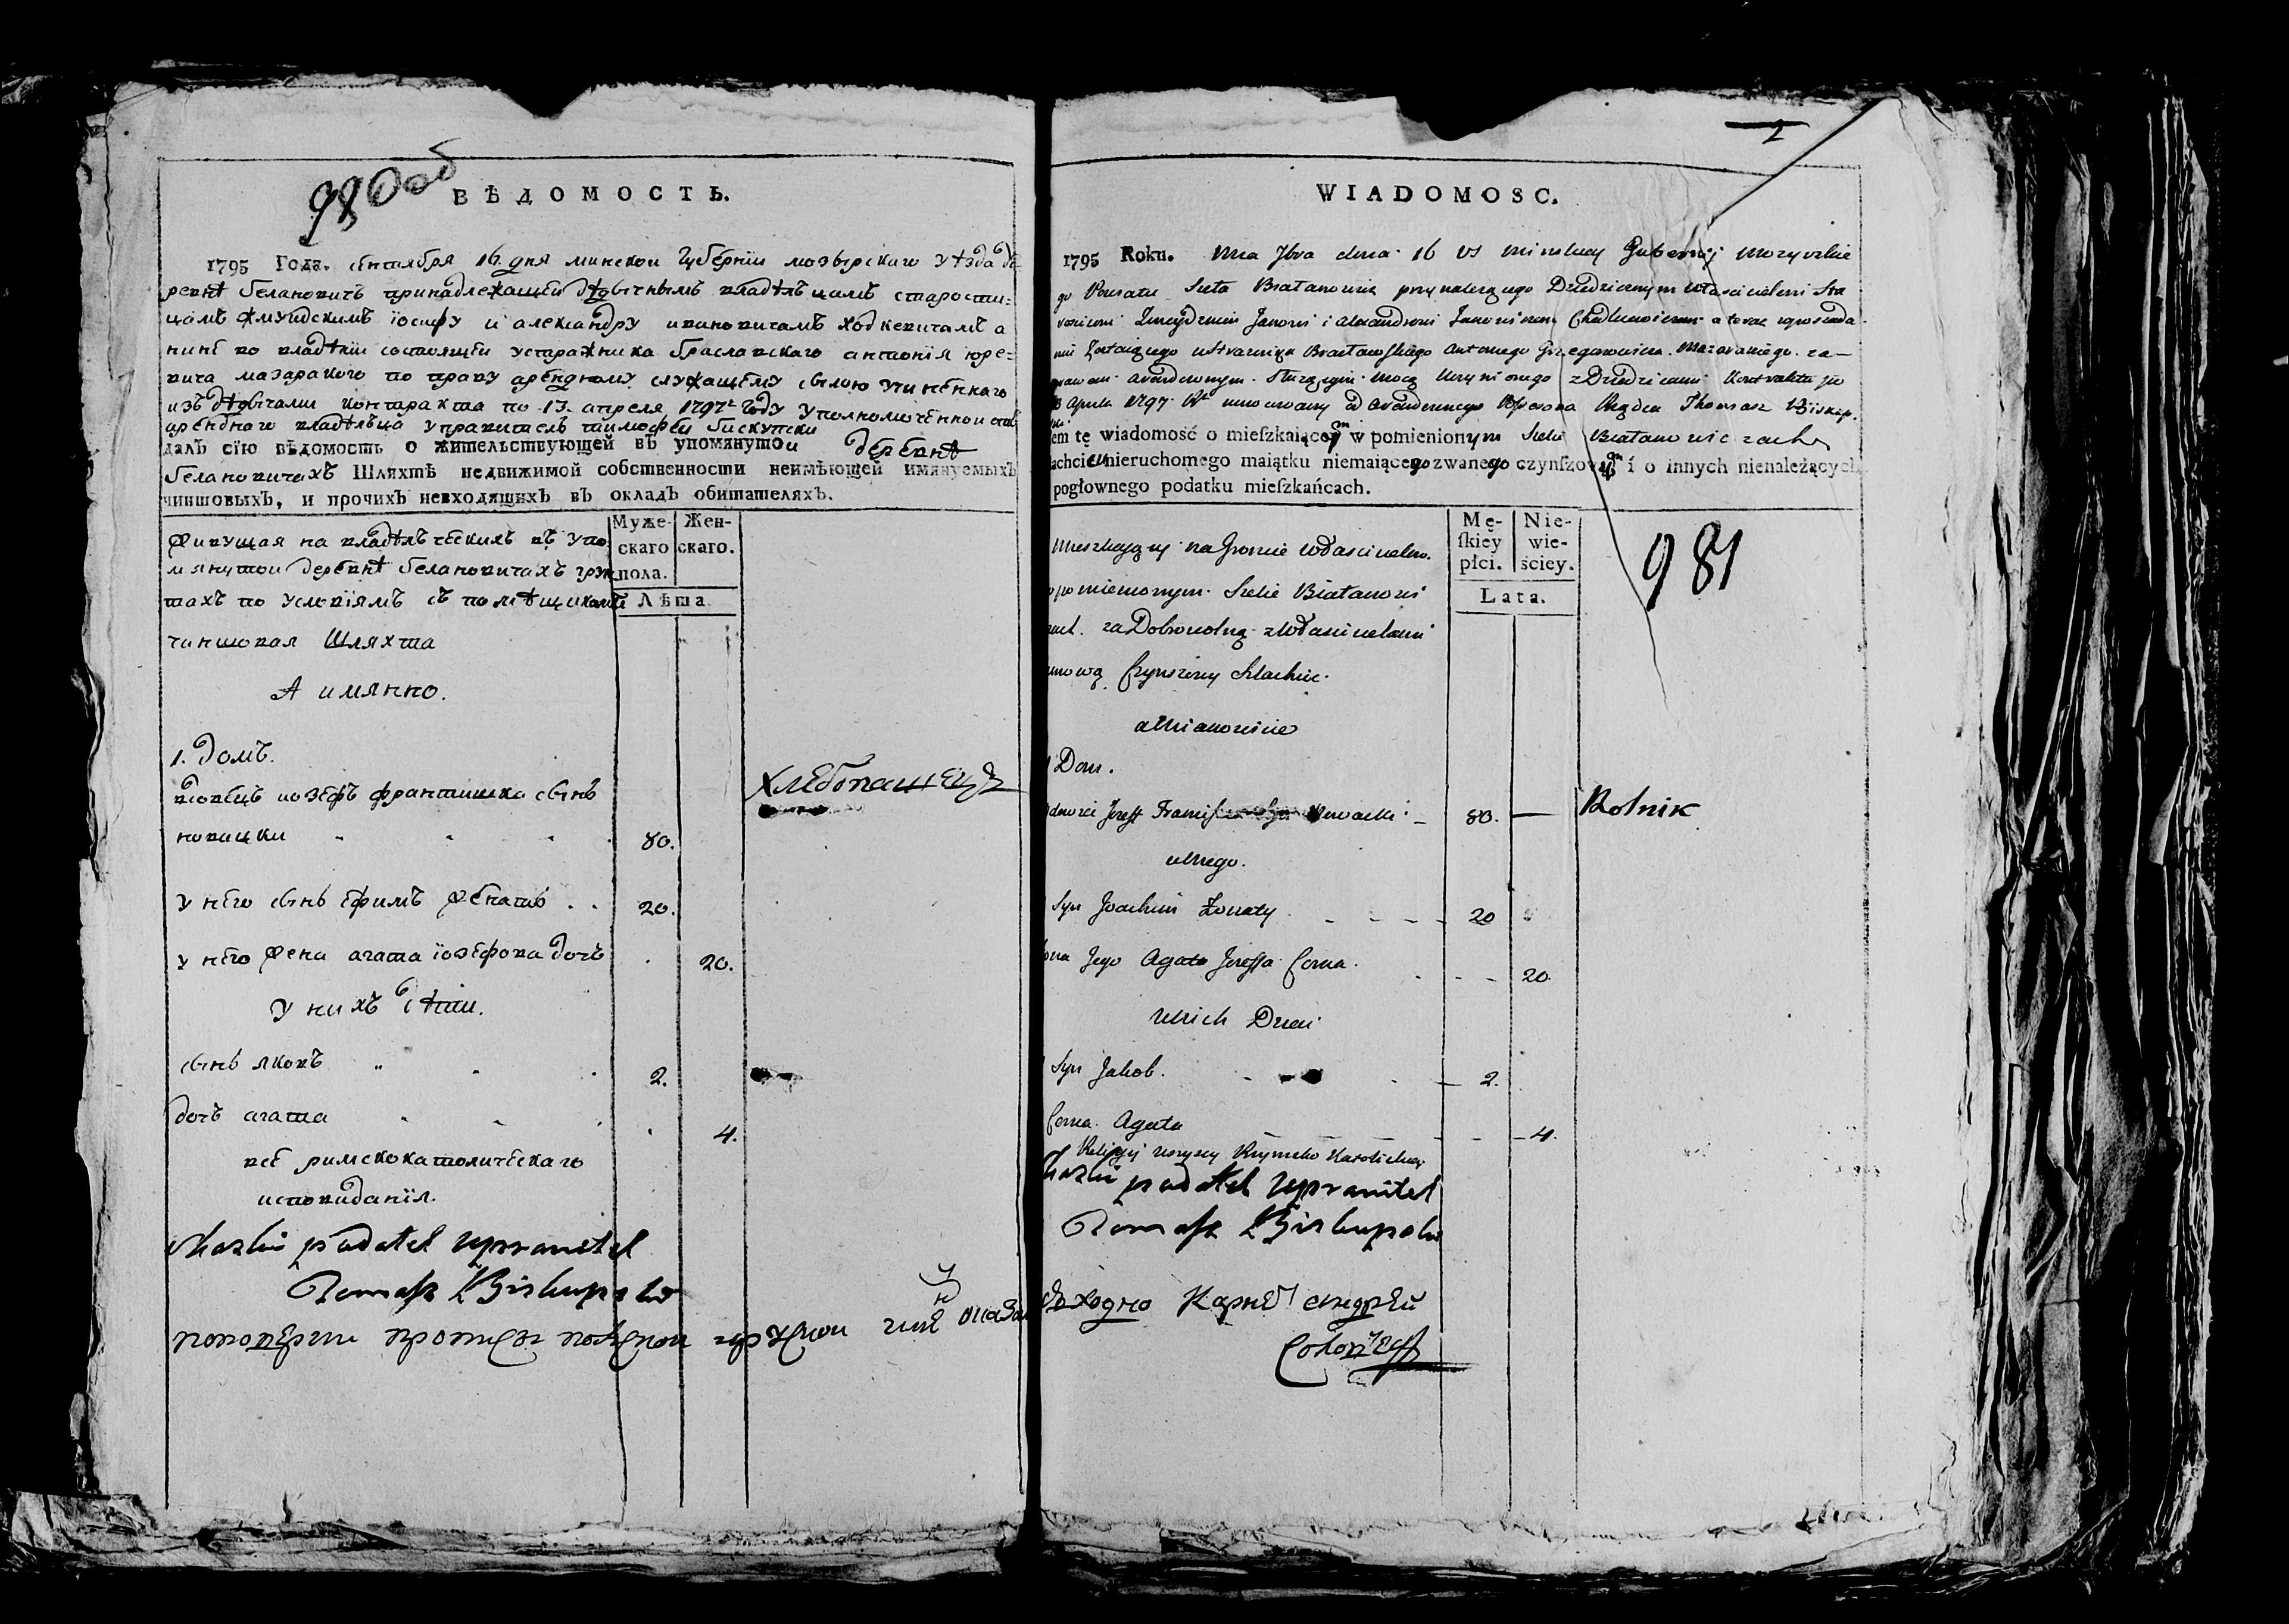 980 об
ВѢДОМОСТЬ.
1795 Года. сентября 16 дня минской губернїи мозырскаго уѣзда де-
ревнѣ белановичъ принадлежащей дѣдычнымъ владѣльцамъ старости-
цамъ жмуйдскимъ іосифу и александру ивановичамъ ходкевичамъ а
нинѣ во владѣнїи состоящей устражника браславскаго антонїя юре-
вича мазаракого по праву арендному служащему силою учиненнаго
изъ дѣдычами контракта по 13. апреля 1797го году уполномоченной отъ
арендного владѣльца управитель тимофей бискупски
далъ сїю вѣдомость о жительствующей въ упомянутои деревнѣ
белановичахъ Шляхтѣ недвижимой собственности неимѣющей имянуемыхъ
чиншовыхъ, и прочихъ невходящихъ въ окладъ обитателяхъ.
Муже-
скаго
пола.
Жен-
скаго.
Лѣта
живущая на владѣльческихъ въ упо
мянутой деревнѣ белановичахъ грун
тахъ по условїямъ съ помѣщиками
чиншовая Шляхта
А имянно.
1. домъ.
вдовецъ иозефъ франтишка сынъ
новицки 80.
Хлебопашецъ
у него сынъ ефимъ женатъ . . 20.
у него жена агата іозефова дочь . 20.
у нихъ дѣти.
сынъ яковъ 2.
дочь агата 4.
всѣ римскокатолическаго
исповиданїя.
skazki podatel uprawitel
Tomasz Biskupski
по поверки против
WIADOMOSC.
1795 Roku. Mca 7bra dnia 16 w minskiey Gubernij mozyrskie
go Powiatu Sieła Białanowicz przynależącego Dziedzicznym włascicielom Sta
roscicom Zmuydzkim Janowi i alexandrowi Janowiczom Chodkiewiczom a teraz wposiada
niu Zostaiącego ustrażnika Bracławskiego Antoniego Grzegorzewicza Mazarakiego za
prawem arendownym słuzącym mocą Uczynionego z Dziedzicami Kontraktu po
13 Aprila 1797 Rku umocowany od arendownego Possesora Rządca Thomasz Biskup.
em tę wiadomość o mieſzkaiącey w pomienionym Siele Białanowiczach
achcie nieruchomego maiątku niemaiącego zwanego czynſzowym i o innych nienależących
pogłownego podatku mieſzkańcach.
Mę-
ſkiey
płci.
Nie-
wie-
ściey.
Lata.
981
Mieszkaiący na Gruncie własciciełow
pomienionym Siele Białanowi
czach za Dobrowolną z Własciciełami
umową Czynszowy Szlachcic
a Mianowicie
1 Dom.
Wdowiec Jozeff Nowacki 80. —
Rolnik
u Niego.
Syn Joachim Zonaty 20
Zona Jego Agata Jozeffa Corka. 20
u Nich Dzieci
Syn Jakob. 2.
Corka Agata 4.
Religij wszyscy Rzymsko Katolickiey
skazki podatel uprawitel
Tomasz Biskupski